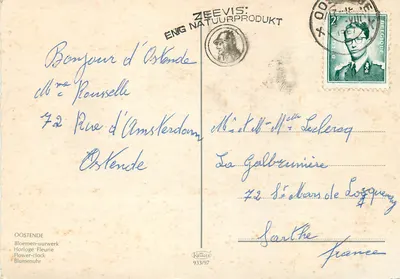 ZEEVIS:
ENIG NATUURPRODUKT
BELGIQUE
Bonjour d'Ostende
Mme Rousselle
72 Rue d'Amsterdam
Ostende
Mr et Mme Melle Leclercq
La Galbrunière
72 St Mars de
Sarthe
France
OOSTENDE
Bloemen-uurwerk
Horloge Fleurie
Flower-clock
Blumenuhr